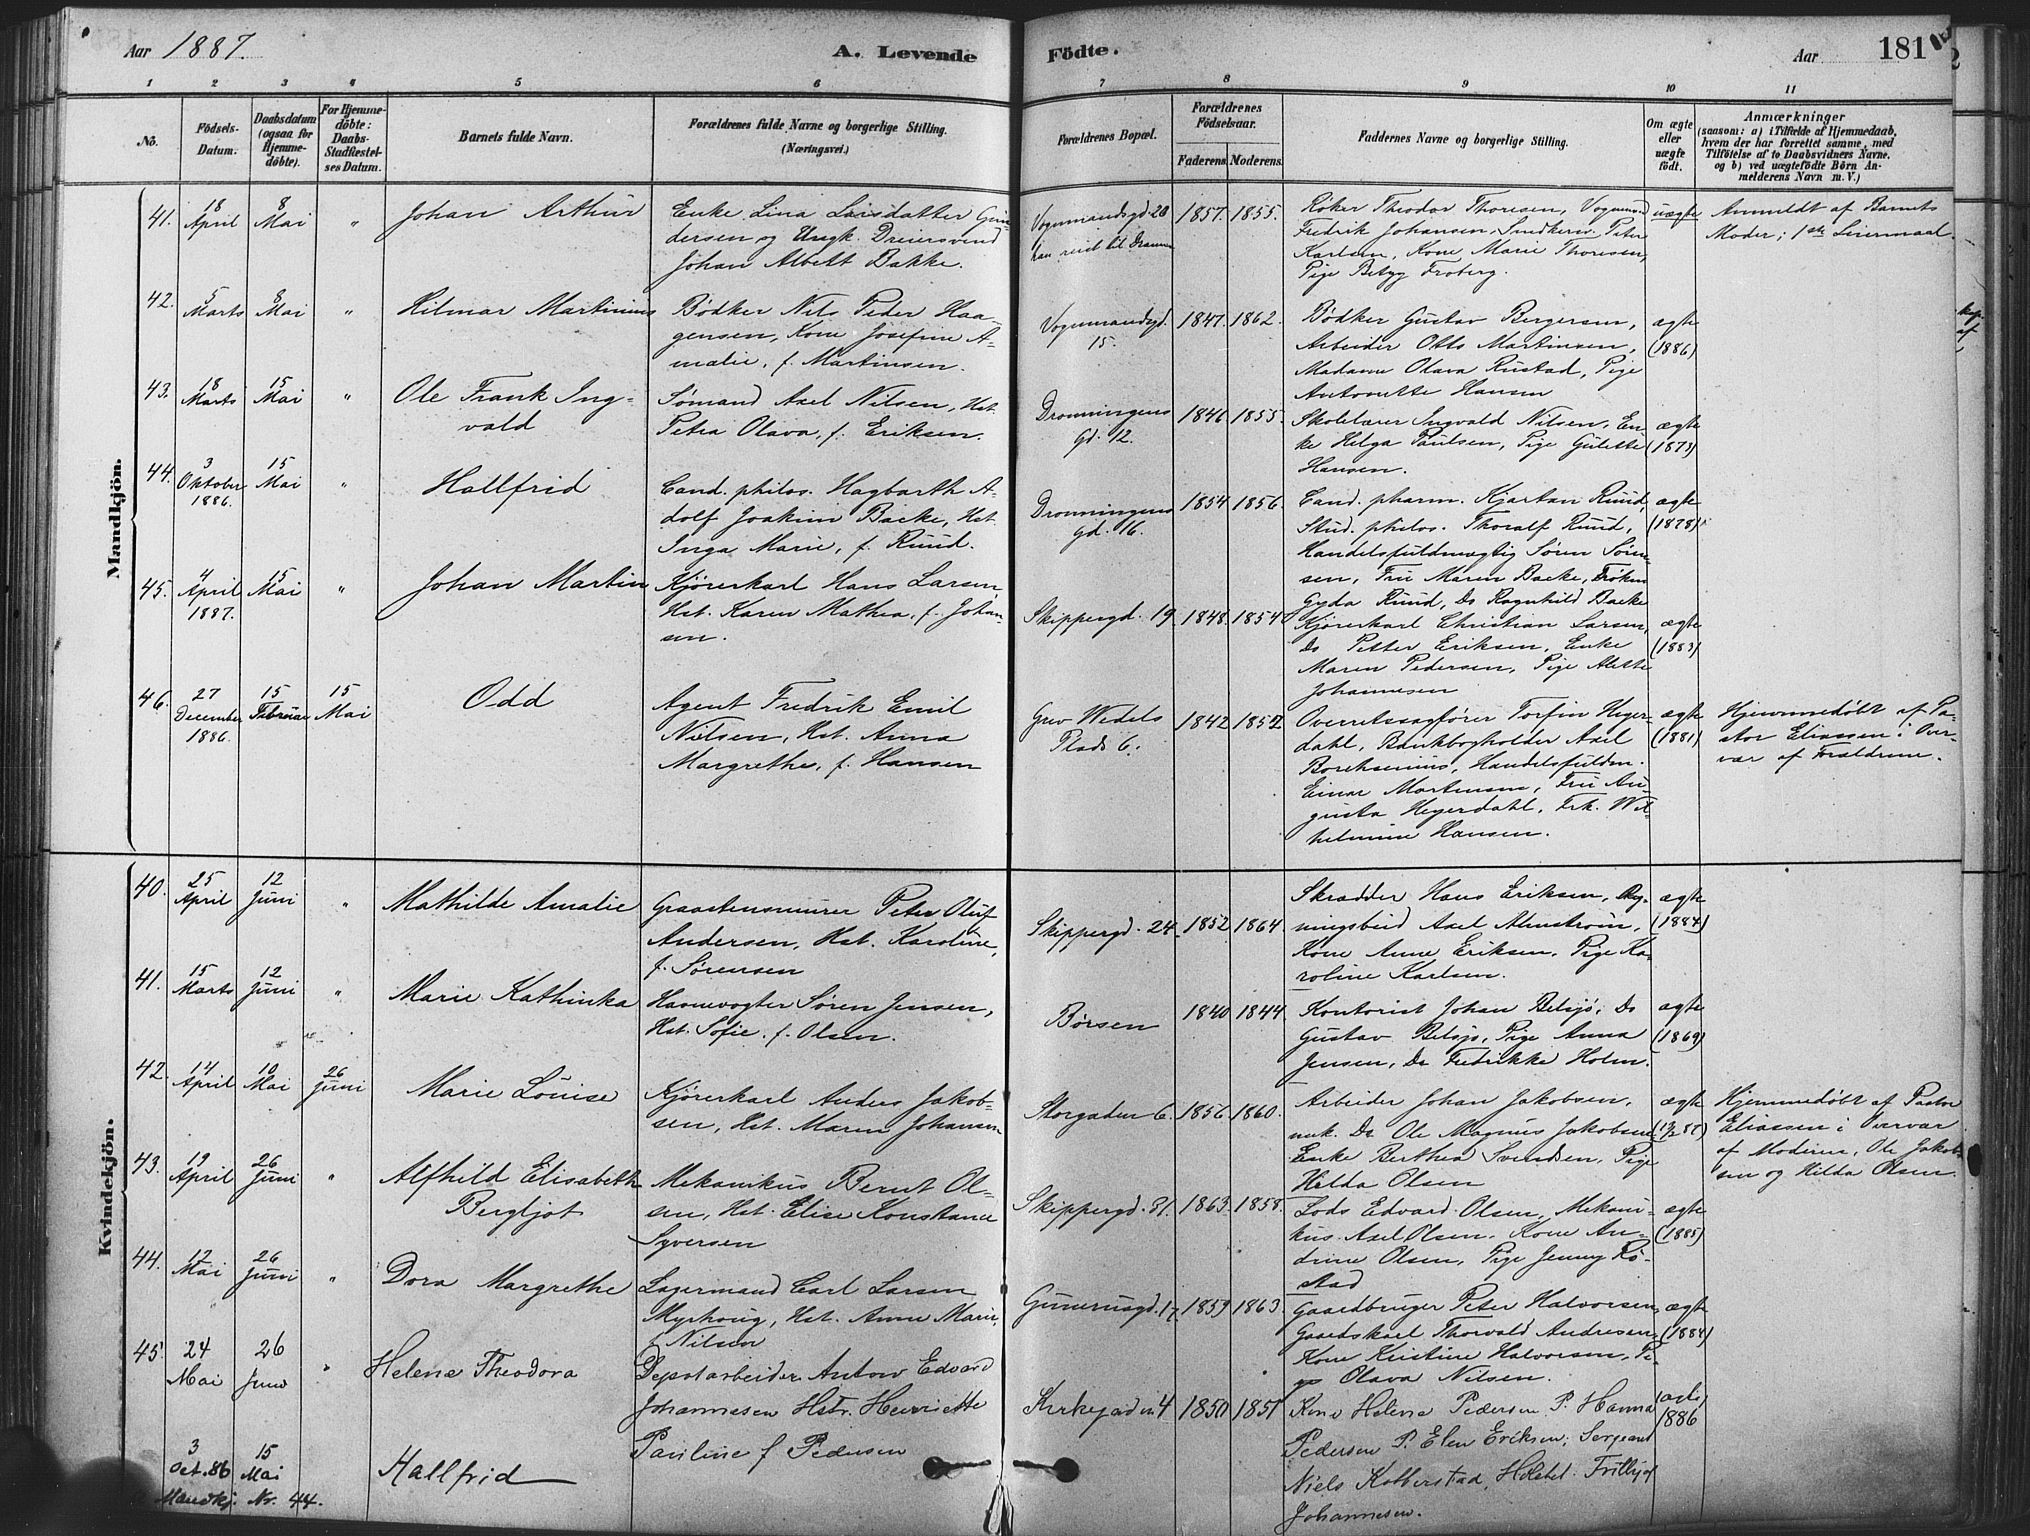 Aar 1887. A. Levende Födte. Aar 181
1 2 3 4 5 6 7 8 9 10 11
No. Födsels-Datum. Daabsdatum (ogsaa for Hjemme-döbte). For Hjemme-döbte: Daabs-Stadfæstel-ses Datum. Barnets fulde Navn. Forældrenes fulde Navne og borgerlige Stilling. (Næringsvei.) Forældrenes Bopæl. Forældrenes Födselsaar. Faderens. Moderens. Faddernes Navne og borgerlige Stilling. Om ægte eller uægte födt. Anmærkninger (saasom: a) i Tilfælde af Hjemmedaab, hvem der har forrettet samme, med Tilföielse af to Daabsvidners Navne, og b) ved uægtefödte Börn An-melderens Navn m. V.)
Mandkjön.
41. 18 April 8 Mai " Johan Arthur
Enke Lina Larsdatter Gun-
dersen og Ungk. Dreiersvend
Johan Albert Bakke.
Vognmandsgd. 20
han reist til Drammen
1857. 1855.
Røker Theodor Thoresen, Vognmand
Fredrik Johansen, Snedkersv. Peter
Karlsen, Kone Marie Thoresen,
Pige Betzy Froberg.
uægte
Anmeldt af Barnets
Moder; 1ste Leiermaal.
42. 5 Marts 8 Mai " Hilmar Martinius
Bødker Nils Peder Haa-
gensen, Kone Josefine A-
malie, f. Martinsen.
Vognmandsgd.
15.
1847. 1862.
Bødker Gustav Bergersen,
Arbeider Otto Martinsen,
Madame Olava Rustad, Pige
Antonette Hansen
ægte
(1886)
43. 18 Marts 15 Mai " Ole Frank Ing-
vald
Sømand Axel Nilsen, Hst.
Petra Olava, f. Eriksen.
Dronningens
Gd. 12.
1846 1855
Skolelærer Ingvald Nilsen, En-
ke Helga Paulsen, Pige Gulette
Hansen.
ægte
(1873)
44. 3 Oktober 1886. 15 Mai " Hallfrid
Cand. philos. Hagbarth A-
dolf Joakim Backe, Hst.
Inga Marie, f. Ruud.
Dronningens
gd. 16.
1854 1856
Cand. pharm. Kjartan Ruud,
Stud. philos. Thoralf Ruud,
Handelsfuldmægtig Søren Søren-
sen, Fru Maren Backe, Frøken
Gyda Ruud, Do Ragnhild Backe
ægte
(1878)
45. 4 April 1887. 15 Mai " Johan Martin
Kjørerkarl Hans Larsen,
Hst. Karen Mathea, f. Johan-
sen.
Skippergd. 19
1848 1854
Kjørerkarl Christian Larsen,
Do Petter Eriksen, Enke
Maren Pedersen, Pige Alette
Johannesen
ægte
(1883)
46. 27 December 1886. 15 Februar 15 Mai Odd
Agent Fredrik Emil
Nilsen, Hst. Anna
Margrethe, f. Hansen
Grev Wedels
Plads 6.
1842 1852
Overretssagfører Torfin Heger-
dahl, Bankbogholder Axel
Borchsenius, Handelsfuldm.
Einar Mortensen, Fru Au-
gusta Hegerdahl, Frk. Wil-
helmine Hansen.
ægte
(1881)
Hjemmedøbt af Pa-
stor Eliassen i Over-
vær af Forældrene.
Kvindekjön.
40. 25 April 12 Juni " Mathilde Amalie
Graastensmurer Peter Oluf
Andersen, Hst. Karoline,
f. Sørensen
Skippergd. 24
1852 1864
Skrædder Hans Eriksen, Byg-
ningsbeid Axel Almstrøm,
Kone Anne Eriksen, Pige Ka-
roline Karlsen.
ægte
(1884)
41. 15 Marts 12 Juni " Marie Kathinka
Havnevogter Søren Jensen,
Hst. Sofie, f. Olsen.
Børsen
1840 1844
Kontorist Johan Belsjø, Do
Gustav Belsjø, Pige Anna
Jensen, Do Fredrikke Holm.
ægte
(1869)
42. 14 April 10 Mai 26 Juni Marie Louise
Kjørerkarl Anders Jakob-
sen, Hst. Maren Johansen
Storgaden 6.
1856 1860.
Arbeider Johan Jakobsen,
Do Ole Magnus Jakobsen
Enke Berthea Svendsen, Pige
Hilda Olsen
ægte
Hjemmedøbt af Pastor
Eliassen i Overvær
af Moderen, Ole Jakob-
sen og Hilda Olsen.
43. 19 April 26 Juni " Alfhild Elisabeth
Bergljot
Mekanikus Bernt Ol-
sen, Hst. Elise Konstance
Syversen
Skippergd. 31.
1863 1858.
Lods Edvard Olsen, Mekani-
kus Axel Olsen, Kone An-
drine Olsen, Pige Jenny Rø-
stad
ægte
(1885)
44. 12 Mai 26 Juni " Dora Margrethe
Lagermand Carl Larsen
Myrhoug, Hst. Anne Marie,
f. Nilsen
Gunerusgd. 17.
1859 1863.
Gaardbruger Peter Halvorsen,
Gaardskarl Thorvald Andresen,
Kone Kristine Halvorsen, Pi-
ge Olava Nilsen.
ægte
(1884)
45 24 Mai 26 Juni " Helene Theodora
Depotarbeider Anton Edvard
Johannesen Hstr. Henriette
Pauline f Pedersen
Kirkegaden 4
1850 1851
Kone Helene Pedersen P. Hanna
Pedersen P. Elen Eriksen, Sergeant
Niels Kolberstad, Frithjof
Johannesen.
ægte
1886
3 Oct. 86 15 Mai Hallfrid
Mandkj. Nr. 44.